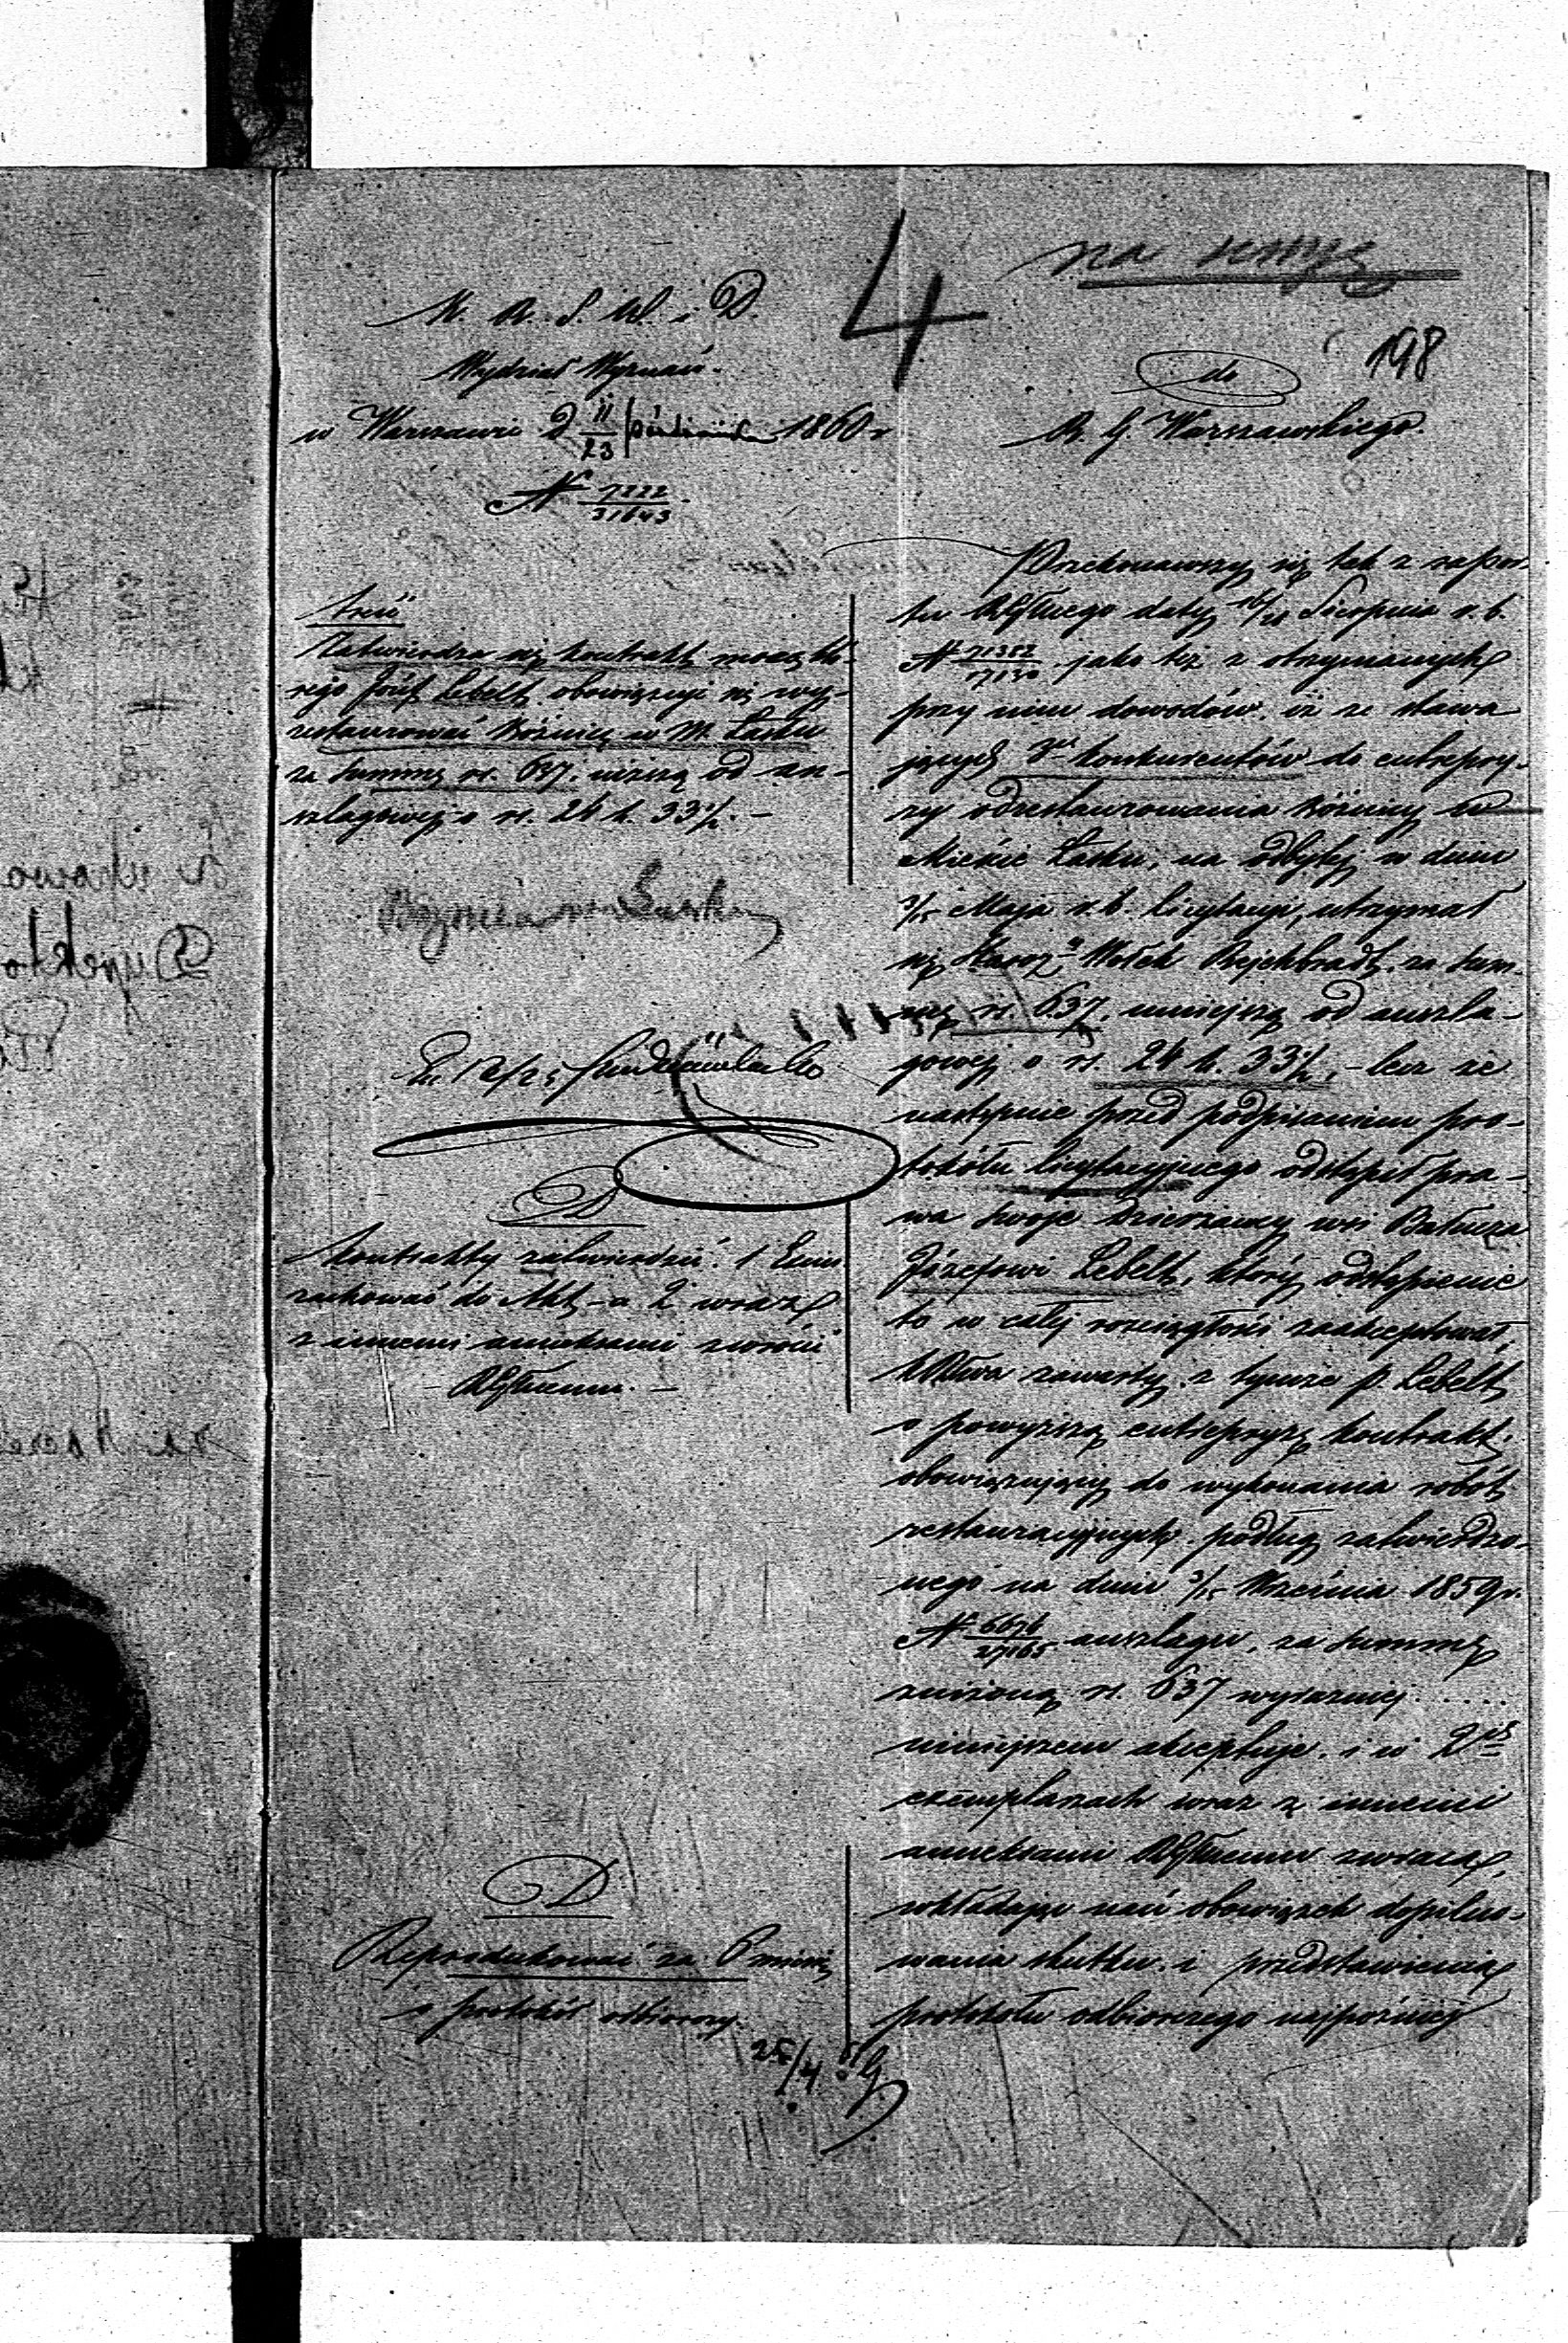 4
198
K. R. S. W. i D.
Wydział Wyznań.
w Warszawie D 11/23 Października 1860 r
N 7222/31643
do
R. G. Warszawskiego.
treść
Zatwierdza się kontrakt mocą któ-
rego Józef Lebelt obowiązuje się wy-
restaurować Bóżnicę w M. Łasku
za summę rs. 637. niższą od an-
szlagowej o rs. 24 k. 33 1/2. –
Bożnica m. Łasku
D
Kontrakty zatwierdzić. 1 Exem.
zachować do Akt – a 2 wraz
z innemi annexami zwrócić
– RGłnemu. –
D
Reprodukować za 6 mcy
o protokół odbiorczy.
25/4
Przekonawszy się tak z rapor-
tu RGłnego daty 16/28 Sierpnia r. b.
N 71382/17130 jako też z otrzymanych
przy nim dowodów, iż ze stawa
jących 3ch konkurentów do entrepry-
zy odrestaurowania Bóżnicy w
Mieście Łasku, na odbytej w dniu
3/15 Maja r. b. licytacyi, utrzymał
się Staroz. Wołek Rejchbradt, za sum-
mę rs. 637, mniejszą od anszla-
gowej o rs. 24 k. 33 1/2, – lecz że
następnie przed podpisaniem pro-
tokółu licytacyjnego odstąpił pra-
wa swoje Dzierżawcy wsi Bałucza
Józefowi Lebelt, który odstąpienie
to w całej rozciągłości zaakceptował,
KRwa zawarty z tymże p. Lebelt
o powyższą entrepryzę kontrakt,
obowiązujący do wykonania robót
restauracyjnych podług zatwierdzo-
nego na dniu 3/15 Września 1859 r.
N 6676/27165 anszlagu, za summę
zniżoną rs. 637 wyraźniej . . . . .
niniejszem akceptuje i w 2ch
exemplarzach wraz z innemi
annexami RGłnemu zwraca,
wkładając nań obowiązek dopilno-
wania skutku i przedstawienia
protokółu odbiorczego najpóźniej